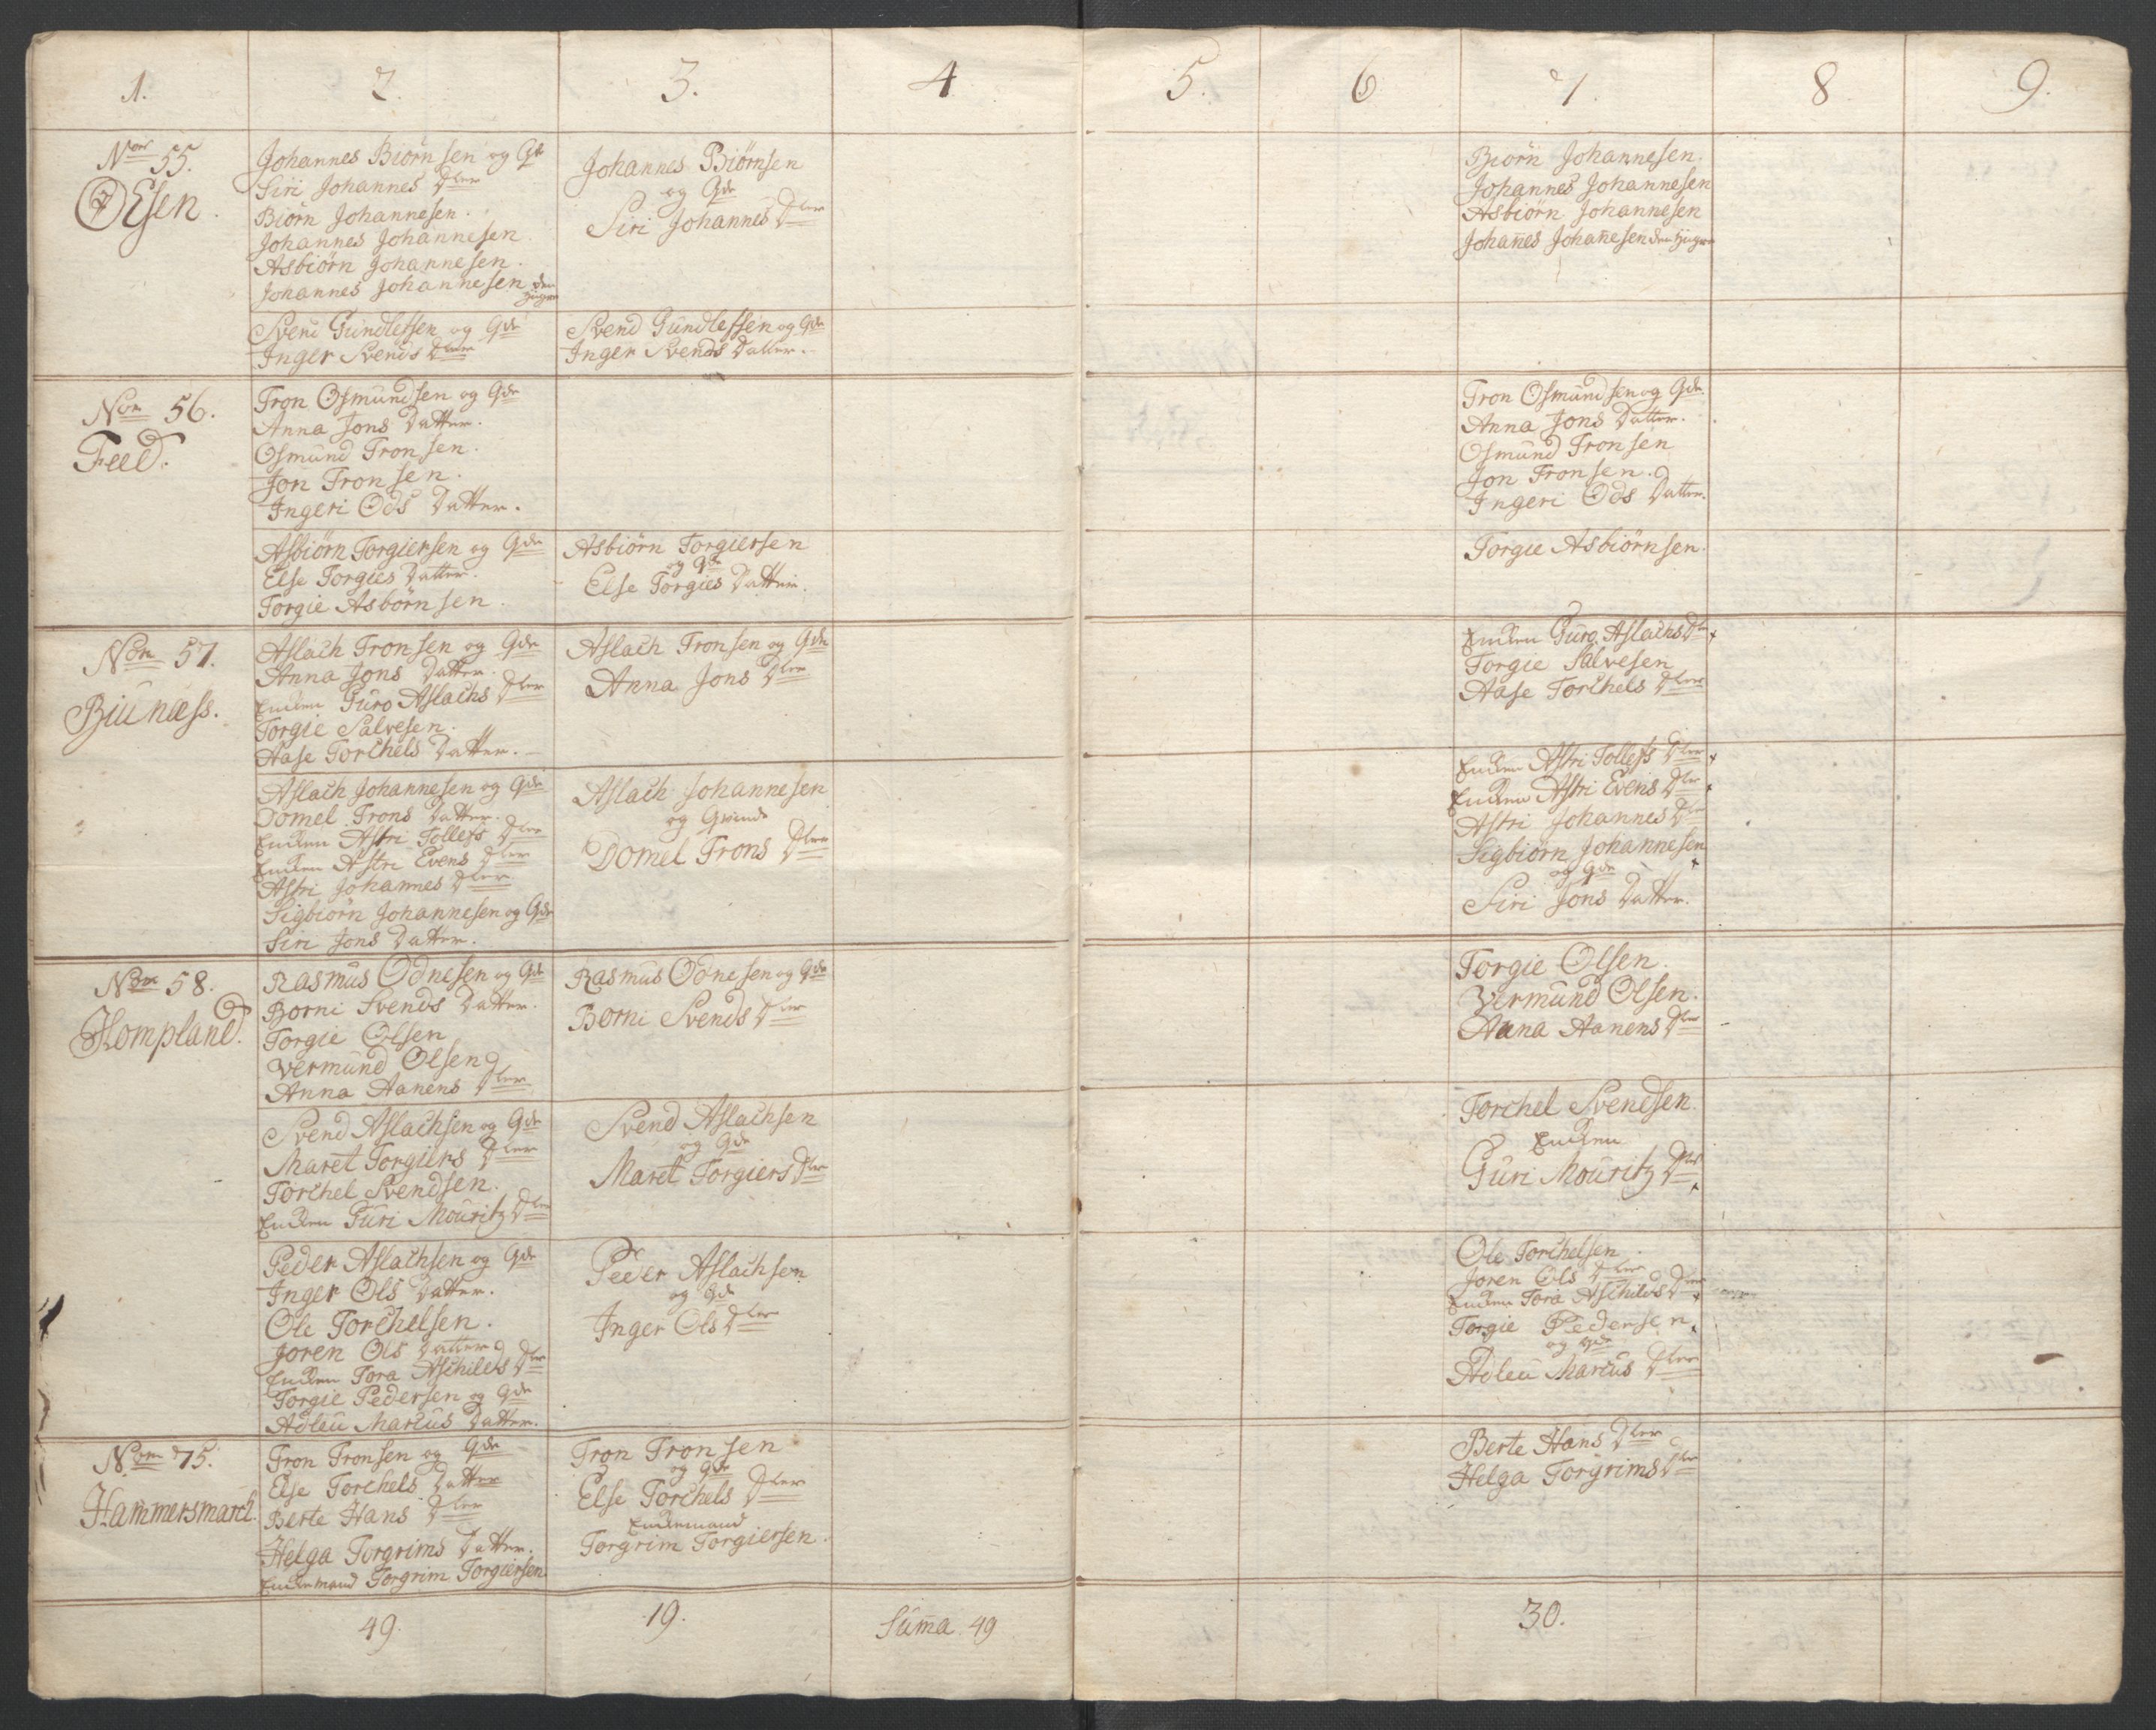 1.
2.
3.
4
5.
6
7.
8
9.
Nor 55.
Øÿsen.
Johannes Biørnsen og Gde
Siri Johannes Dter
Biørn Johannesen.
Johannes Johannesen
Asbiørn Johannesen.
Johannes Johannesen den
Yngre
Johannes Biørnsen
og Gde
Siri Johannes Dter
Biørn Johannesen.
Johannes Johannesen
Asbiørn Johannesen
Johan̄es Johan̄esen den Yngre
Svend Gundlefsen og Gde
Inger Svends Dter
Svend Gundlefsen og Gde
Inger Svends Datter.
Nor 56.
Feed.
Tron Osmundsen og Gde
Anna Jons Datter.
Osmund Tronsen.
Jon Tronsen.
Ingeri Ods Datter.
Tron Osmundsen og Gde.
Anna Jons Datter.
Osmund Tronsen
Jon Tronsen.
Ingeri Ods Datter.
Asbiørn Torgiersen og Gde
Else Torgies Datter.
Torgie Asbørnsen.
Asbiørn Torgiersen
og Gde
Else Torgies Datter.
Torgie Asbiørnsen.
Nor 57.
Biunæss.
Aslach Tronsen og Gde
Anna Jons Datter.
Encken Guro Aslachs Dter
Torgie Salvesen.
Aase Torchels Datter.
Aslach Tronsen og Gde
Anna Jons Dter
Encken Guro Aslachs Dter
Torgie Salvesen
Aase Torchels Dter
Aslach Johannesen og Gde
Domel Trons Datter.
Encken Astri Tollefs Dter
Encken Astri Evens Dter
Astri Johannes Dter
Sigbiørn Johannesen og Gde
Siri Jons Datter.
Aslach Johannesen
og Qvinde
Domel Trons Dter
Encken Astri Tollefs Dter
Encken Astri Evens Dter
Astri Johannes Dter
Sigbiørn Johannesen
og Gde
Siri Jons Datter.
Nor 58.
Hompland.
Rasmus Odnesen og Gde
Borni Svends Datter.
Torgie Olsen
Vermund Olsen
Anna Aanens Dter
Rasmus Odnesen og Gde
Borni Svends Dter
Torgie Olsen.
Vermund Olsen.
Anna Aanens Dter
Svend Aslachsen og Gde
Maret Torgiers Dter
Torchel Svendsen.
Encken Guri Mouritz Dter
Svend Aslachsen
og Gde
Maret Torgiers Dter
Torchel Svendsen
Encken
Guri Mouritz Dter
Peder Aslachsen og Gde
Inger Ols Datter.
Ole Torchelsen.
Joren Ols Datter
Encken Tora Aschilds Dter
Torgie Pedersen og Gde
Adleu Marcus Datter.
Peder Aslachsen
og Gde
Inger Ols Dter
Ole Torchelsen.
Joren Ols Dter
Encken Tora Aschilds Dter
Torgie Pedersen
og Gde
Adleu Marcus Dter
Nor 75.
Hammersmarck.
Tron Tronsen og Gde
Else Torchels Datter
Berte Hans Dter
Helga Torgrims Datter.
Enckemand Torgrim Torgiersen
Tron Tronsen
og Gde
Else Torchels Dter
Enckemand
Torgrim Torgiersen.
Berte Hans Dter
Helga Torgrims Dter
49.
19.
Sum̄a 49
30.